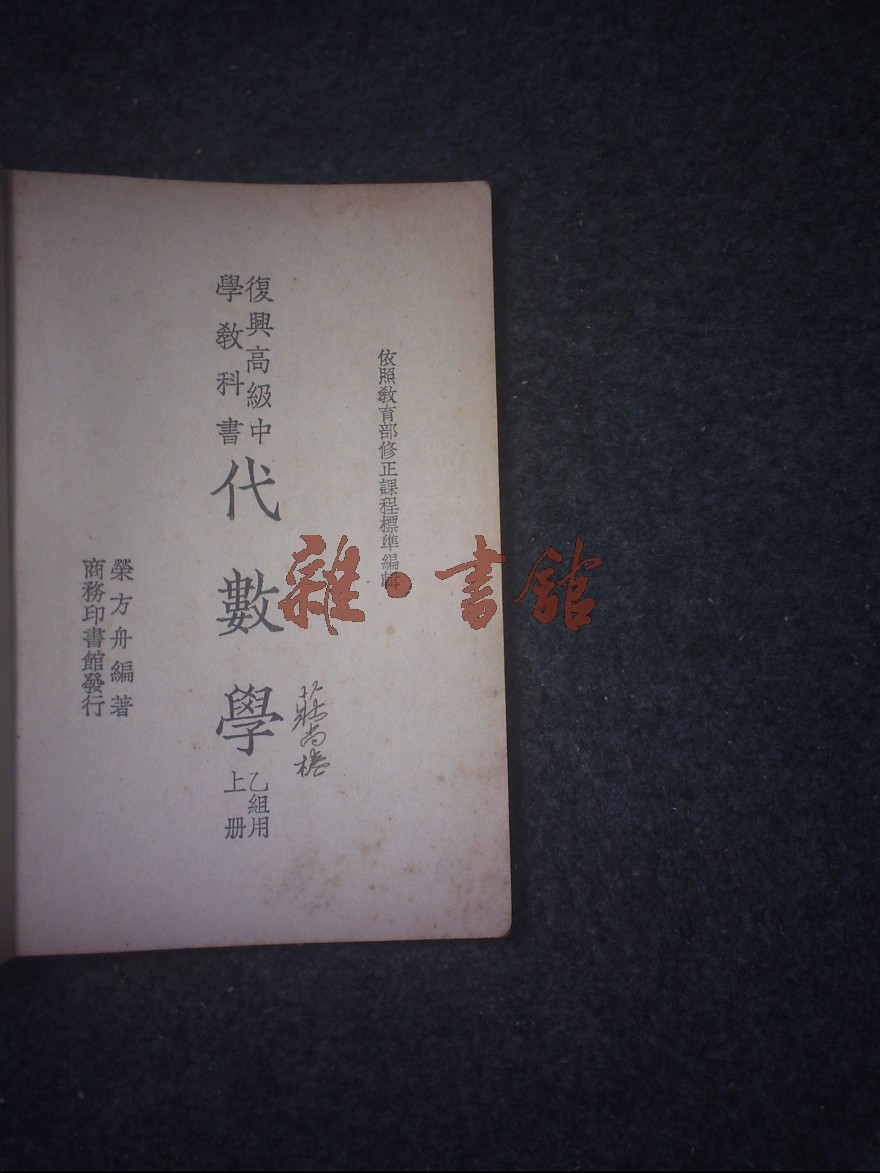 依照教育部修正課程標準編輯
復興高級中
學教科書
代數學
乙組用
上册
榮方舟編著
商務印書館發行
雜·書館